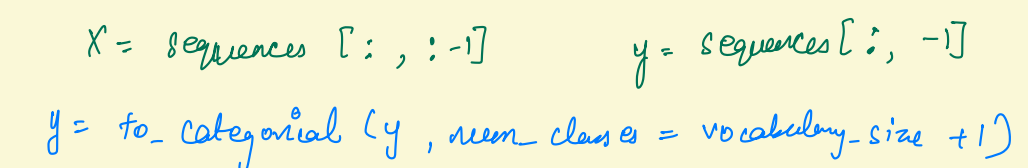 X = sequences [:, :-1] y = sequences[:, -1]
y = to_categorical (y, num_classes = vocabulary_size +1)